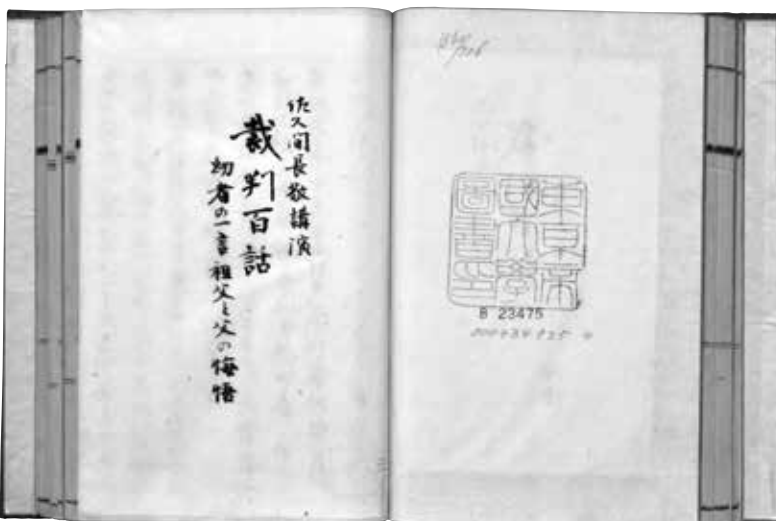 東京帝
国大學
圖書印
B 23475
佐久間長敬講演
裁判百話
幼者の一言祖父と父の悔悟